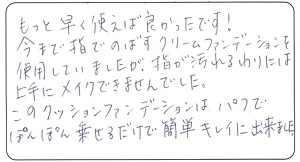 もっと早く使えば良かったです!
今まで指でのばすクリームファンデーションを
使用していましたが、指が汚れるわりには
上手にメイクできませんでした。
このクッションファンデーションは パフで
ぽんぽん乗せるだけで簡単キレイに出来ました